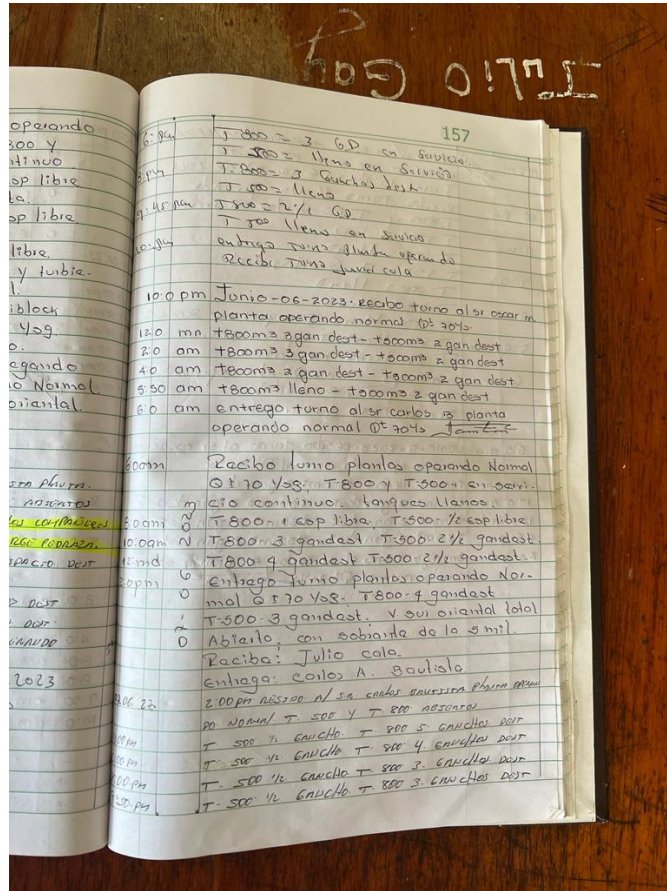 Julio Gay
operando
800 y
ntinuo
sp libre
ta.
sp libre.
libre.
y turbia.
iblock
Y/sg.
o.
egando
o Normal
oriental.
STA PLANTA.
ABIERTOS
LOS COMPAÑEROS
RGE PEDRAZA.
SPACIO DEST
DEST
DEST
2023
157
6: pm T-800 = 3 GD en Servicio.
T-500 = lleno en Servicio
8: pm T-800 = 3 Ganchos dest
T-500 = lleno
9:45 pm T800 = 2 1/2 GD
T 500 lleno en Servicio
10: pm entrego Turno planta operando
Recibe Turno Javier cala
10:0 pm Junio-06-2023. Recibo turno al sr oscar m
planta operando normal Q± 70 l/s.
12:0 mn t800m3 3 gan dest - t500m3 2 gan dest
2:0 am t800m3 3 gan dest - t500m3 2 gan dest
4:0 am t800m3 2 gan dest - t500m3 2 gan dest
5:30 am t800m3 lleno - t500m3 2 gan dest
6:0 am entrego turno al sr carlos B planta
operando normal Q± 70 l/s
6:00am Recibo turno plantas operando Normal
Q ± 70 l/sg. T-800 y T-500 en servi-
cio continuo. tanques llenos.
8:00am T-800-1 esp libre. T-500-1/2 esp libre
10:00am T-800-3 gandest T-500-2 1/2 gandest.
12:md T-800-4 gandest T-500-2 1/2 gandest.
2:0pm Entrego turno plantas operando Nor-
mal Q ± 70 l/sg. T-800-4 gandest
T-500-3 gandest. V sur oriental total
Abierto, con sobrante de la 5 mil.
Recibe: Julio cala.
Entrega: Carlos A. Bautista.
2:00 PM RESIVO A/ SR CARLOS BAUTISTA PLANTA OPERAN
DO NORMAL T 500 Y T 800 ABIERTOS
T 500 1/2 GANCHO T- 800 5. GANCHOS DEST
T- 500 1/2 GANCHO T- 800 4. GANCHOS DEST
T- 500 1/2 GANCHO T- 800 3. GANCHOS DEST
T- 500 1/2 GANCHO T 800 3. GANCHOS DEST